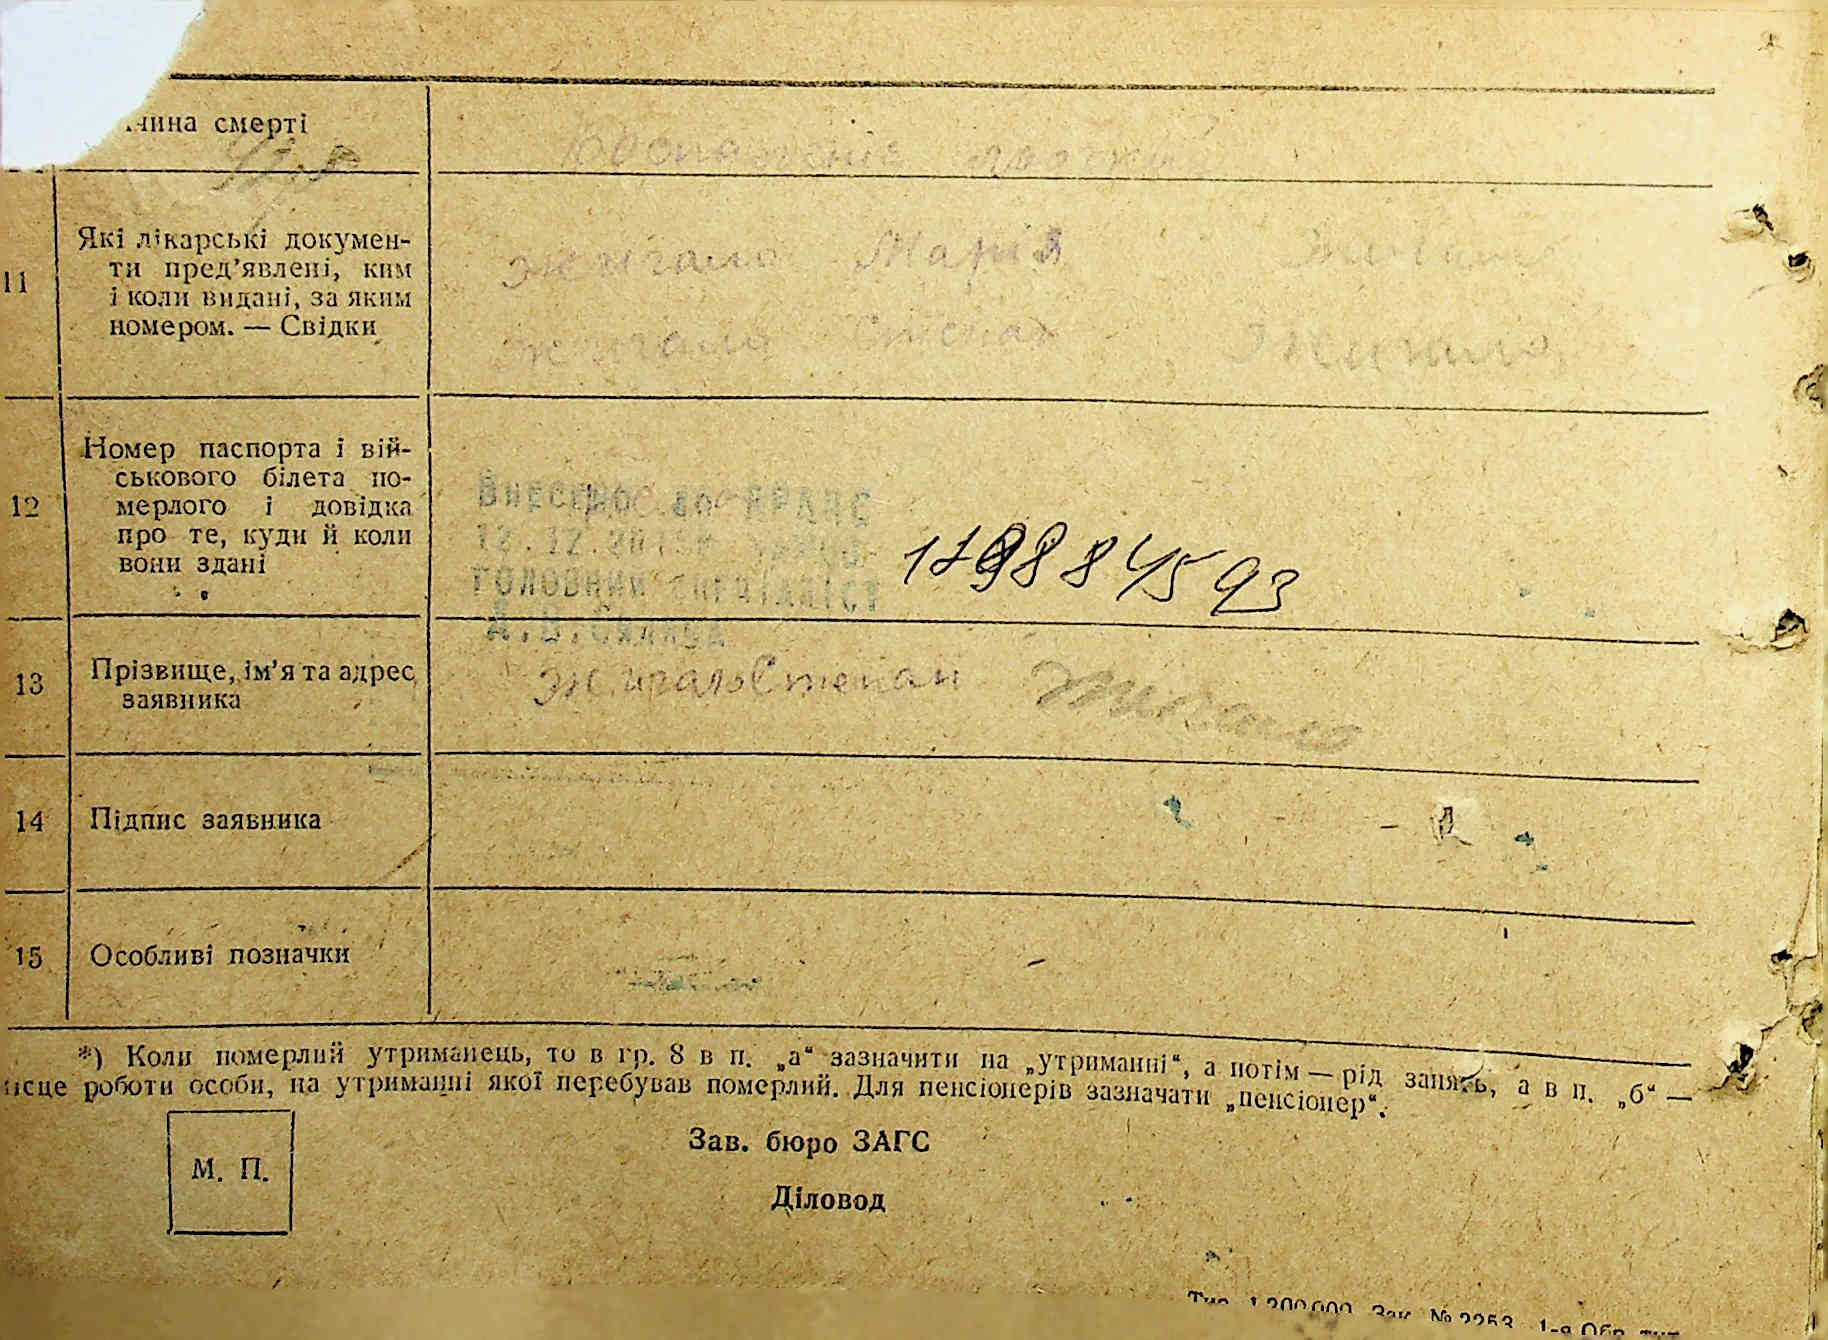 чина смерті
Воспаление легких
11
Які лікарські докумен-
ти пред’явлені, ким
і коли видані, за яким
номером. — Свідки
Жигало Марія Жигало
Жигало Степан Жигало
12
Номер паспорта і вій-
ськового білета по-
мерлого і довідка
про те, куди й коли
вони здані
Внесено до ДРАЦС
12.12.2015р
головний спеціаліст
А.В.
4593
13
Прізвище, ім’я та адрес
заявника
Жигало Степан Жигало
14
Підпис заявника
15
Особливі позначки
*) Коли померлий утриманець, то в гр. 8 в п. „а“ зазначити на „утриманні“, а потім — рід занять, а в п. „б“ —
місце роботи особи, на утриманні якої перебував померлий. Для пенсіонерів зазначати „пенсіонер“.
М. П.
Зав. бюро ЗАГС
Діловод
Тир. 1.200.000 Зак. № 2253 1-а Обр. тип.